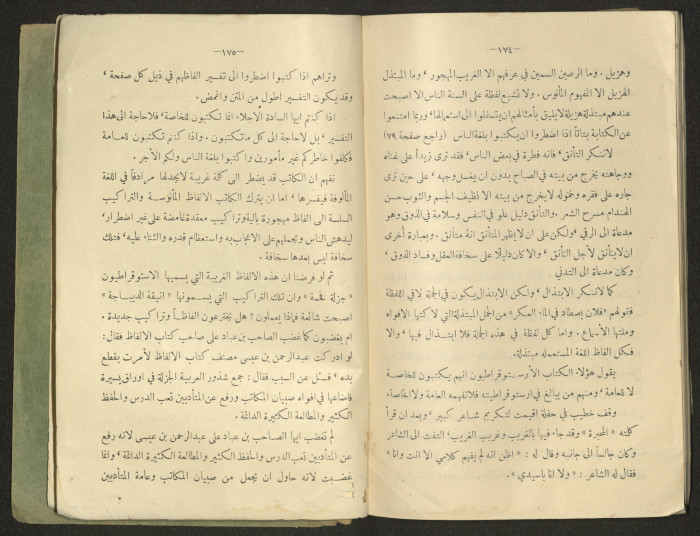 — ١٧٤ —
وهزيل . وما الرصين السمين في عرفهم الا الغريب المهجور ، وما المبتذل
الهزيل الا المفهوم المأنوس . ولا تشيع لفظة على السنة الناس الا اصبحت
عندهم مبتذلة هزيلة لا يليق بأمثالهم ان يتسفلوا الى استعمالها، وربما امتنعوا
عن الكتابة بتاتاً اذا اضطروا ان يكتبوا بلغة الناس (راجع صفحة ٧٩)
لا ننكر التأنق، فانه فطرة في بعض الناس، فقد ترى زيداً على غناه
ووجاهته يخرج من بيته في الصباح بدون ان يغسل وجهه ، على حين ترى
جاره على فقره وخموله لا يخرج من بيته الا نظيف الجسم والثوب حسن
الهندام مسرح الشعر . والتأنق دليل علو في النفس وسلامة في الذوق وهو
مدعاة الى الرقي ، ولكن على ان لا يظهر المتأنق انه متأنق . وبعبارة أخرى
ان لا يتأنق لأجل التأنق ، والا كان دليلاً على سخافة العقل وفساد الذوق ،
وكان مدعاة الى التدني
كما لا ننكر الابتذال ، ولكن الابتذال يكون في الجملة لا في اللفظة
فقولهم «فلان يصطاد في الماء العكر» من الجمل المبتذلة التي لاكتها الافواه
وملتها الأسماع . واما كل لفظة في هذه الجملة فلا ابتذال فيها ، والا
فكل الفاظ اللغة المستعمله مبتذلة.
يقول هؤلاء الكتاب الأرستوقراطيون انهم يكتبون للخاصة
لا للعامة ، ومنهم من يبالغ في ارستوقراطيته فلا تفهمه العامة ولا الخاصة.
وقف خطيب في حفلة اقيمت لتكريم شاعر كبير ، وبعد ان قرأ
كلمته «المحبرة» وقد جاء فيها بالغريب وغريب الغريب، التفت الى الشاعر
وكان جالساً الى جانبه وقال له : «اظن انه لم يفهم كلامي الا انت وانا»
فقال له الشاعر : «ولا انا يا سيدي».
— ١٧٥ —
وتراهم اذا كتبوا اضطروا الى تفسير الفاظهم في ذيل كل صفحة ،
وقد يكون التفسير اطول من المتن واغمض.
اذا كنتم ايها السادة الأجلاء انما تكتبون للخاصة، فلا حاجة الى هذا
التفسير ، بل لا حاجة الى كل ما تكتبون . واذا كنتم تكتبون للعامة
فكلفوا خاطركم غير مأمورين واكتبوا بلغة الناس ولكم الأجر .
نفهم ان الكاتب قد يضطر الى كلمة غريبة لا يجد لها مرادفاً في اللغة
المألوفة فيفسرها ، اما ان يترك الكاتب الالفاظ المأنوسة والتراكيب
السلسة الى الفاظ مهجورة بالية وتراكيب معقدة غامضة على غير اضطرار،
ليدهش الناس ويحملهم على الاعجاب به واستعظام قدره والثناء عليه، فتلك
سخافة ليس بعدها سخافة .
ثم لو فرضنا ان هذه الالفاظ الغريبة التي يسميها الاستوقراطيون
« جزلة فخمة » وان تلك التراكيب التي يسمونها « انيقة الديباجة »
اصبحت شائعة فماذا يعملون؟ هل يخترعون الفاظاً وتراكيب جديدة .
ام يغضبون كما غضب الصاحب بن عباد على صاحب كتاب الالفاظ فقال:
لو ادركت عبد الرحمن بن عيسى مصنف كتاب الالفاظ لأمرت بقطع
يده ، فسئل عن السبب فقال : جمع شذور العربية الجزلة في اوراق يسيرة
فاضاعها في افواه صبيان المكاتب ورفع عن المتأدبين تعب الدرس والحفظ
الكثير والمطالعة الكثيرة الدائمة .
لم تغضب ايها الصاحب بن عباد على عبد الرحمن بن عيسى لانه رفع
عن المتأدبين تعب الدرس والحفظ الكثير والمطالعة الكثيرة الدائمة ، وانما
غضبت لانه حاول ان يجعل من صبيان المكاتب وعامة المتأدبين